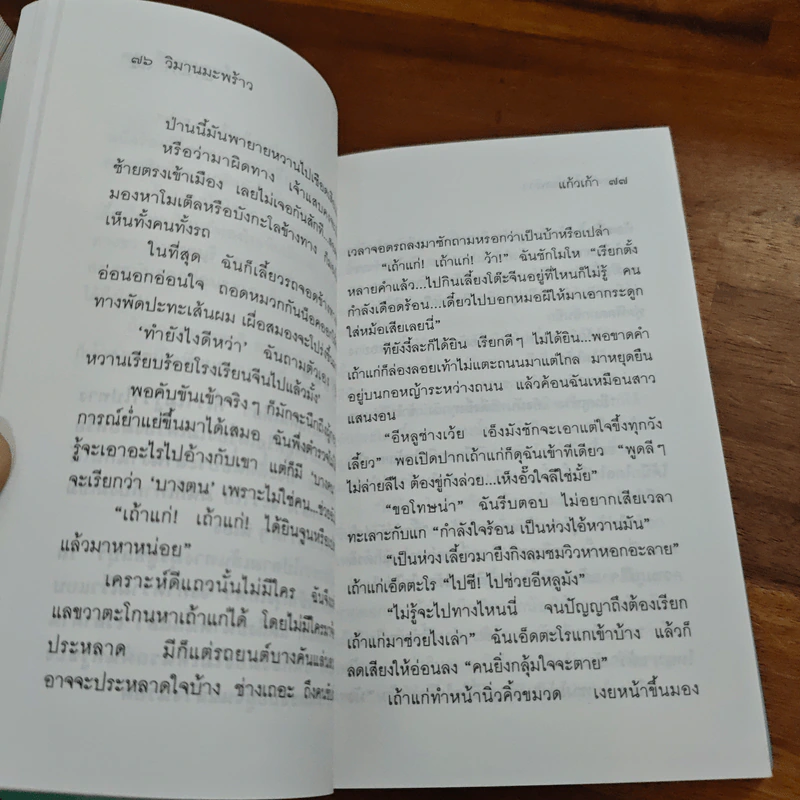 ๗๖ วิมานมะพร้าว
ป่านนี้มันพายายหวานไปเรือด
หรือว่ามาผิดทาง เจ้าแสบคง
ซ้ายตรงเข้าเมือง เลยไม่เจอกันสักที
มองหาโมเต็ลหรือบังกะโลข้างทาง
เห็นทั้งคนทั้งรถ
ในที่สุด ฉันก็เลี้ยวรถจอดข้าง
อ่อนอกอ่อนใจ ถอดหมวกกันน็อค
ทางพัดปะทะเส้นผม เผื่อสมองจะโปร่งขึ้น
‘ทำยังไงดีหว่า’ ฉันถามตัวเอง
หวานเรียบร้อยโรงเรียนจีนไปแล้วมั้ง
พอคับขันเข้าจริงๆ ก็มักจะนึกถึง
การณ์ย่ำแย่ขึ้นมาได้เสมอ ฉันพึ่งตำรวจ
รู้จะเอาอะไรไปอ้างกับเขา แต่ก็มี ‘บาง
จะเรียกว่า ‘บางตน’ เพราะไม่ใช่คน...ช่วย
“เถ้าแก่! เถ้าแก่! ได้ยินจูนหรือ
แล้วมาหาหน่อย”
เคราะห์ดีแถวนั้นไม่มีใคร ฉัน
แลขวาตะโกนหาเถ้าแก่ได้ โดยไม่มีใคร
ประหลาด มีก็แต่รถยนต์บางคันแล่น
อาจจะประหลาดใจบ้าง ช่างเถอะ ถึงคน
แก้วเก้า ๗๗
เวลาจอดรถลงมาซักถามหรอกว่าเป็นบ้าหรือเปล่า
“เถ้าแก่! เถ้าแก่! ว้า!” ฉันชักโมโห “เรียกตั้ง
หลายคำแล้ว...ไปกินเลี้ยงโต๊ะจีนอยู่ที่ไหนก็ไม่รู้ คน
กำลังเดือดร้อน...เดี๋ยวไปบอกหมอผีให้มาเอากระดูก
ใส่หม้อเสียเลยนี่”
ทียังงี้ละก็ได้ยิน เรียกดีๆ ไม่ได้ยิน...พอขาดคำ
เถ้าแก่ก็ล่องลอยเท้าไม่แตะถนนมาแต่ไกล มาหยุดยืน
อยู่บนกอหญ้าระหว่างถนน แล้วค้อนฉันเหมือนสาว
แสนงอน
“อีหลูช่างเว้ย เอ็งมังชักจะเอาแต่ใจขึ้งทุกวัง
เลี้ยว” พอเปิดปากเถ้าแก่ก็ดุฉันเข้าทีเดียว “พูดลีๆ
ไม่ล่ายลีไง ต้องขู่กังล่วย...เห็งอั๊วใจลีใช่มั้ย”
“ขอโทษน่า” ฉันรีบตอบ ไม่อยากเสียเวลา
ทะเลาะกับแก “กำลังใจร้อน เป็นห่วงไอ้หวานมัน”
“เป็นห่วงเลี้ยวมายืงกิงลมชมวิวหาหอกอะลาย”
เถ้าแก่เอ็ดตะโร “ไปซี! ไปช่วยอีหลูมัง”
“ไม่รู้จะไปทางไหนนี่ จนปัญญาถึงต้องเรียก
เถ้าแก่มาช่วยไงเล่า” ฉันเอ็ดตะโรแกเข้าบ้าง แล้วก็
ลดเสียงให้อ่อนลง “คนยิ่งกลุ้มใจจะตาย”
เถ้าแก่ทำหน้านิ่วคิ้วขมวด เงยหน้าขึ้นมอง